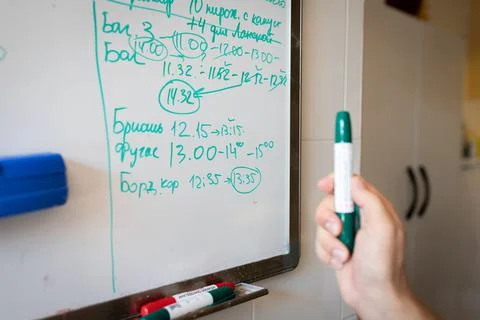 10 пирож. с капуст
+4 для
Баг. 3
Баг 14.00 11.00 - 12.00 - 13.00 -
11.32 - 11.52 - 12.12 - 12.32
14.32
Бриошь 12.15 → 13:15
Фугас 13.00 - 14⁰⁰ - 15⁰⁰
Борд. кор 12:35 → 13:35